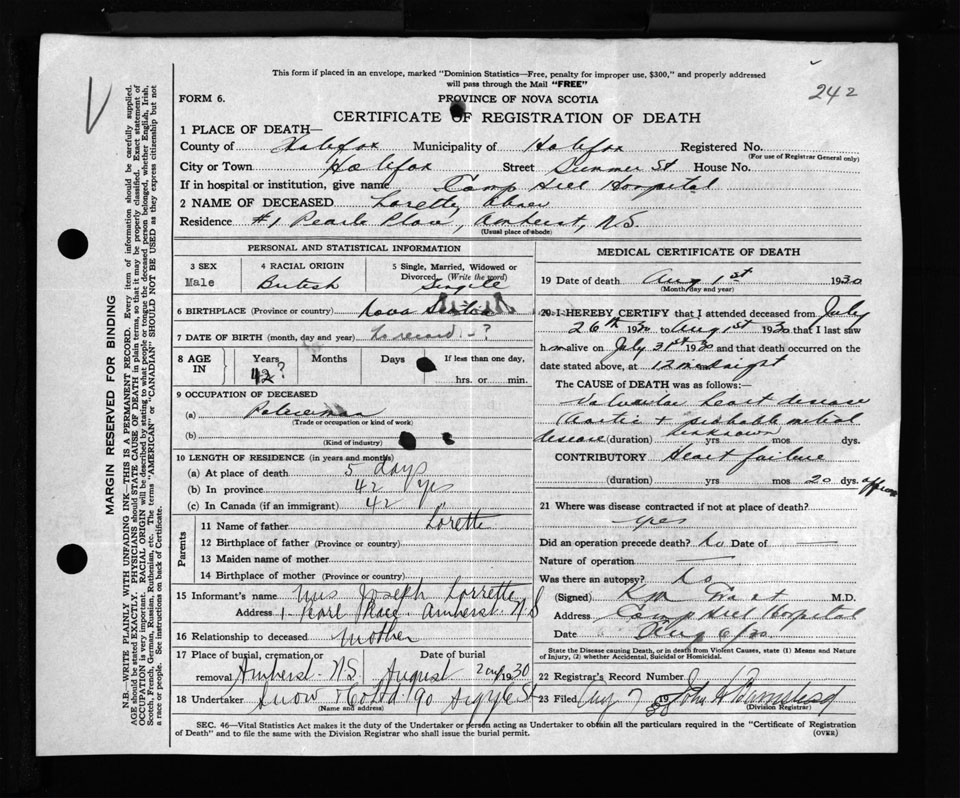 This form if placed in an envelope, marked "Dominion Statistics—Free, penalty for improper use, $300," and properly addressed
will pass through the Mail "FREE"
242
FORM 6.
PROVINCE OF NOVA SCOTIA
CERTIFICATE OF REGISTRATION OF DEATH
1 PLACE OF DEATH—
County of Halifax Municipality of Halifax Registered No.
(For use of Registrar General only)
City or Town Halifax Street Summer St House No.
If in hospital or institution, give name Camp Hill Hospital
2 NAME OF DECEASED Lorette, Abner
Residence #1 Pearle Place, Amherst, N.S.
(Usual place of abode)
PERSONAL AND STATISTICAL INFORMATION
3 SEX Male
4 RACIAL ORIGIN British
5 Single, Married, Widowed or Divorced (Write the word) Single
6 BIRTHPLACE (Province or country) Nova Scotia
7 DATE OF BIRTH (month, day and year) No record - ?
8 AGE IN Years 42? Months Days If less than one day, hrs. or min.
9 OCCUPATION OF DECEASED
(a) Policeman
(Trade or occupation or kind of work)
(b)
(Kind of industry)
10 LENGTH OF RESIDENCE (in years and months)
(a) At place of death 5 days
(b) In province 42 yrs
(c) In Canada (if an immigrant) 42
Parents
11 Name of father Lorette
12 Birthplace of father (Province or country)
13 Maiden name of mother
14 Birthplace of mother (Province or country)
15 Informant's name Mrs Joseph Lorrette
Address 1 Pearl Place, Amherst N S
16 Relationship to deceased Mother
17 Place of burial, cremation, or removal Amherst. N.S. Date of burial August 2nd 1930
18 Undertaker Snow & Co Ltd 90 Argyle St
(Name and address)
MEDICAL CERTIFICATE OF DEATH
19 Date of death Aug 1st 1930
(Month, day and year)
20 I HEREBY CERTIFY that I attended deceased from July
26th 1930 to Aug 1st 1930 that I last saw
him alive on July 31st 1930 and that death occurred on the
date stated above, at 12 midnight
The CAUSE OF DEATH was as follows:—
Valvular heart disease
(Aortic + probable mitral
disease (duration) unknown yrs mos dys.
CONTRIBUTORY Heart failure
(duration) yrs mos 20 dys. approx
21 Where was disease contracted if not at place of death?
yes
Did an operation precede death? No Date of —
Nature of operation —
Was there an autopsy? No
(Signed) M.D.
Address Camp Hill Hospital
Date Aug 6/30
State the Disease causing Death, or in death from Violent Causes, state (1) Means and Nature of Injury, (2) whether Accidental, Suicidal or Homicidal.
22 Registrar's Record Number
23 Filed Aug 7 1930 John A
(Division Registrar)
SEC. 46—Vital Statistics Act makes it the duty of the Undertaker or person acting as Undertaker to obtain all the particulars required in the "Certificate of Registration
of Death" and to file the same with the Division Registrar who shall issue the burial permit.
(OVER)
MARGIN RESERVED FOR BINDING
N.B.—WRITE PLAINLY WITH UNFADING INK—THIS IS A PERMANENT RECORD. Every item of information should be carefully supplied.
AGE should be stated EXACTLY. PHYSICIANS should STATE CAUSE OF DEATH in plain terms, so that it may be properly classified. Exact statement of
OCCUPATION is very important. RACIAL ORIGIN will be described by stating to what people or tongue the deceased person belonged, whether English, Irish,
Scotch, French, German, Russian, Ruthenian, etc. The terms "AMERICAN" or "CANADIAN" SHOULD NOT BE USED as they express citizenship but not
a race or people. See instructions on back of Certificate.